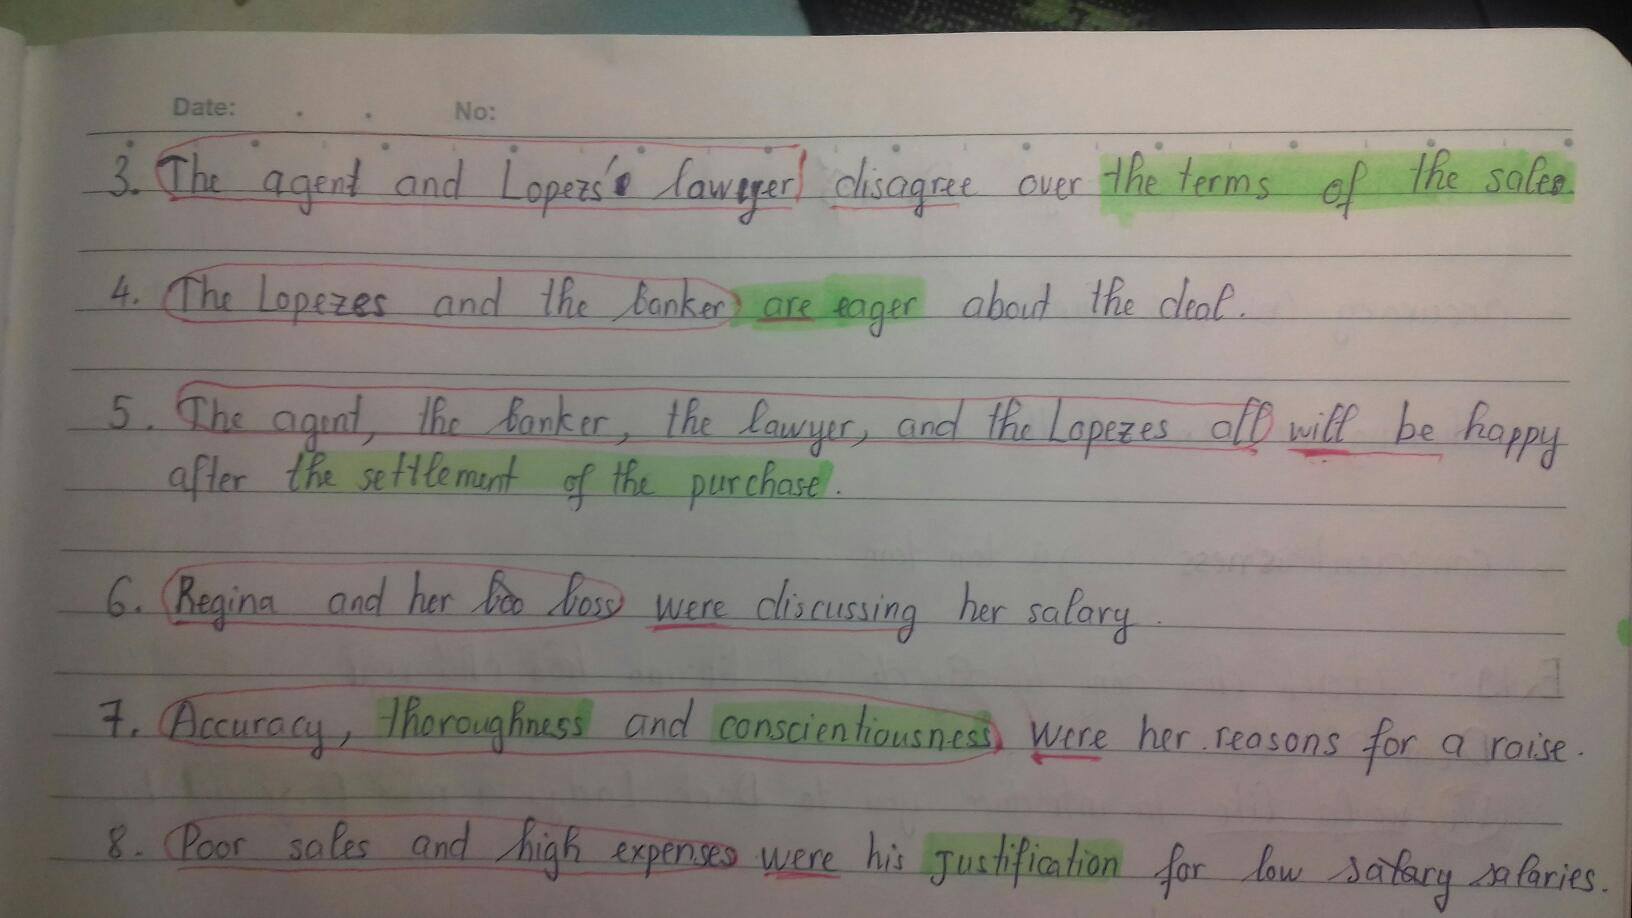 Date: . . No:
3. The agent and Lopezs's lawyer disagree over the terms of the sale.
4. The Lopezes and the banker are eager about the deal.
5. The agent, the banker, the lawyer, and the Lopezes all will be happy
after the settlement of the purchase.
6. Regina and her boo boss were discussing her salary.
7. Accuracy, thoroughness and conscientiousness were her reasons for a raise.
8. Poor sales and high expenses were his justification for low salary salaries.